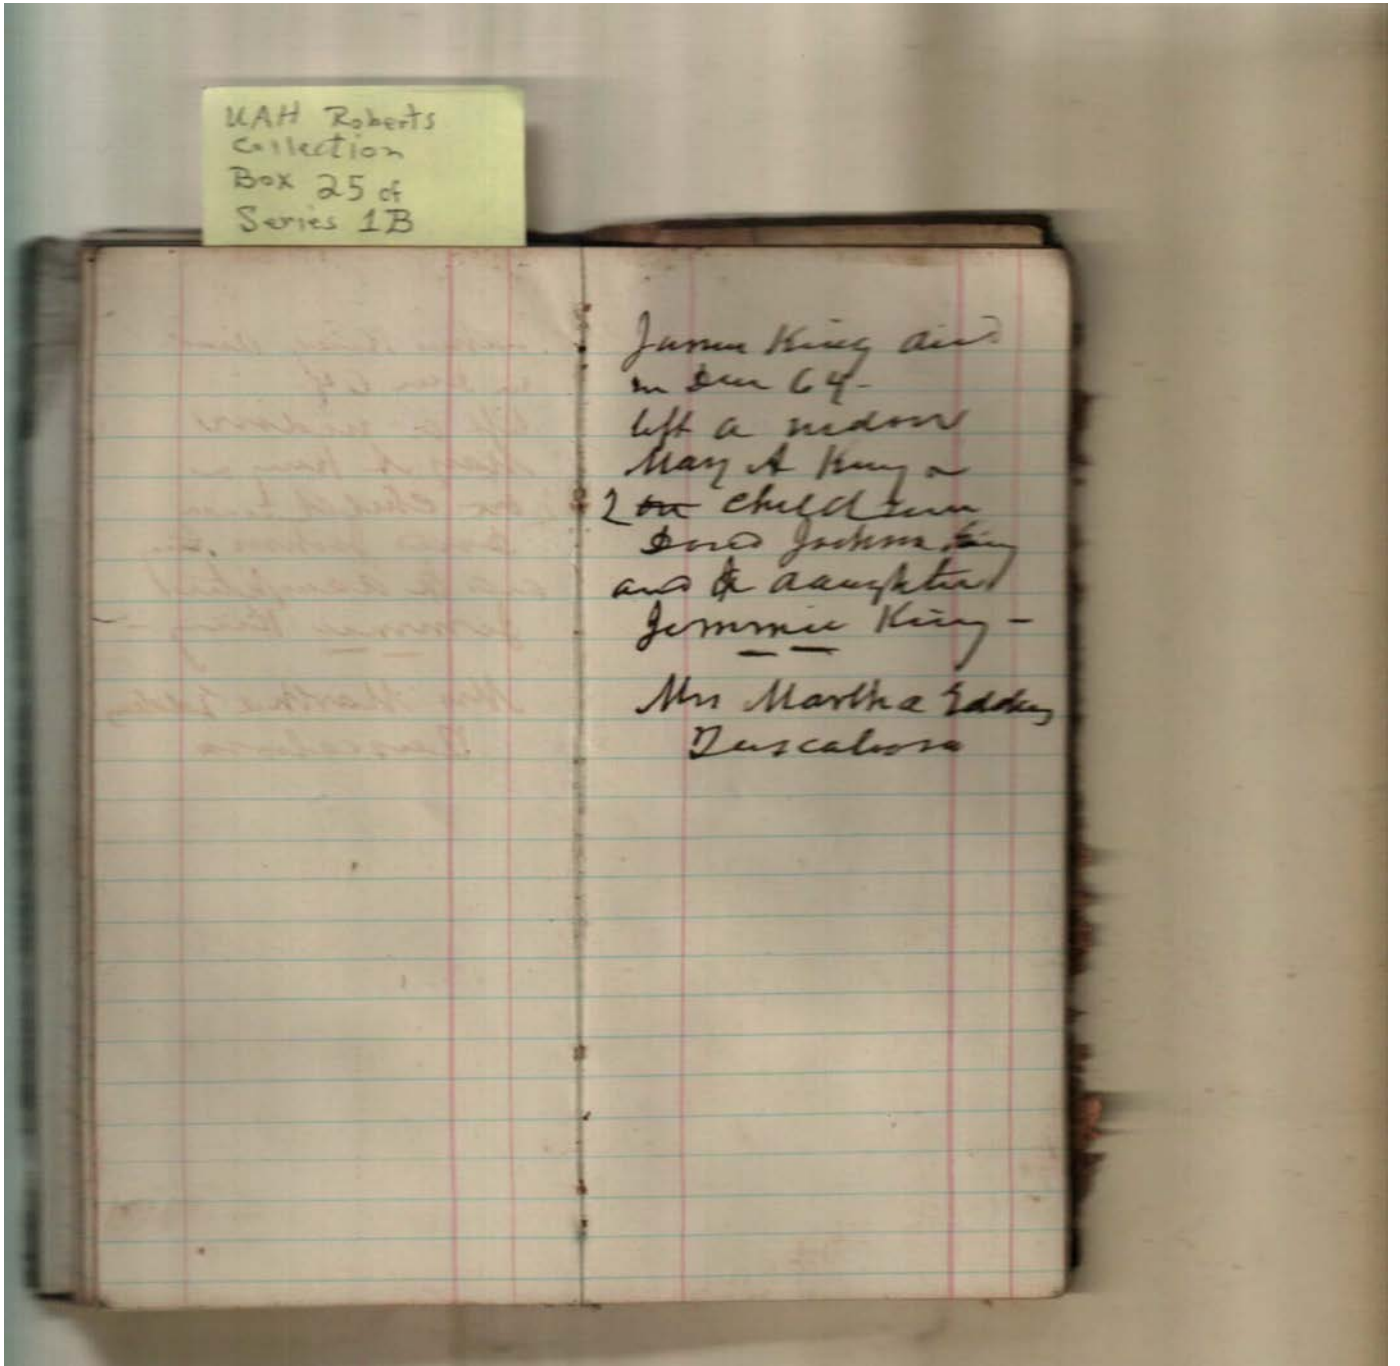 UAH Roberts
Collection
Box 25 of
Series 1B
James King died
in Dec 64-
left a widow
Mary A King &
2 children
David Jackson King
and daughter
Jemmie King -
Mrs Martha Eddins
Tuscaloosa